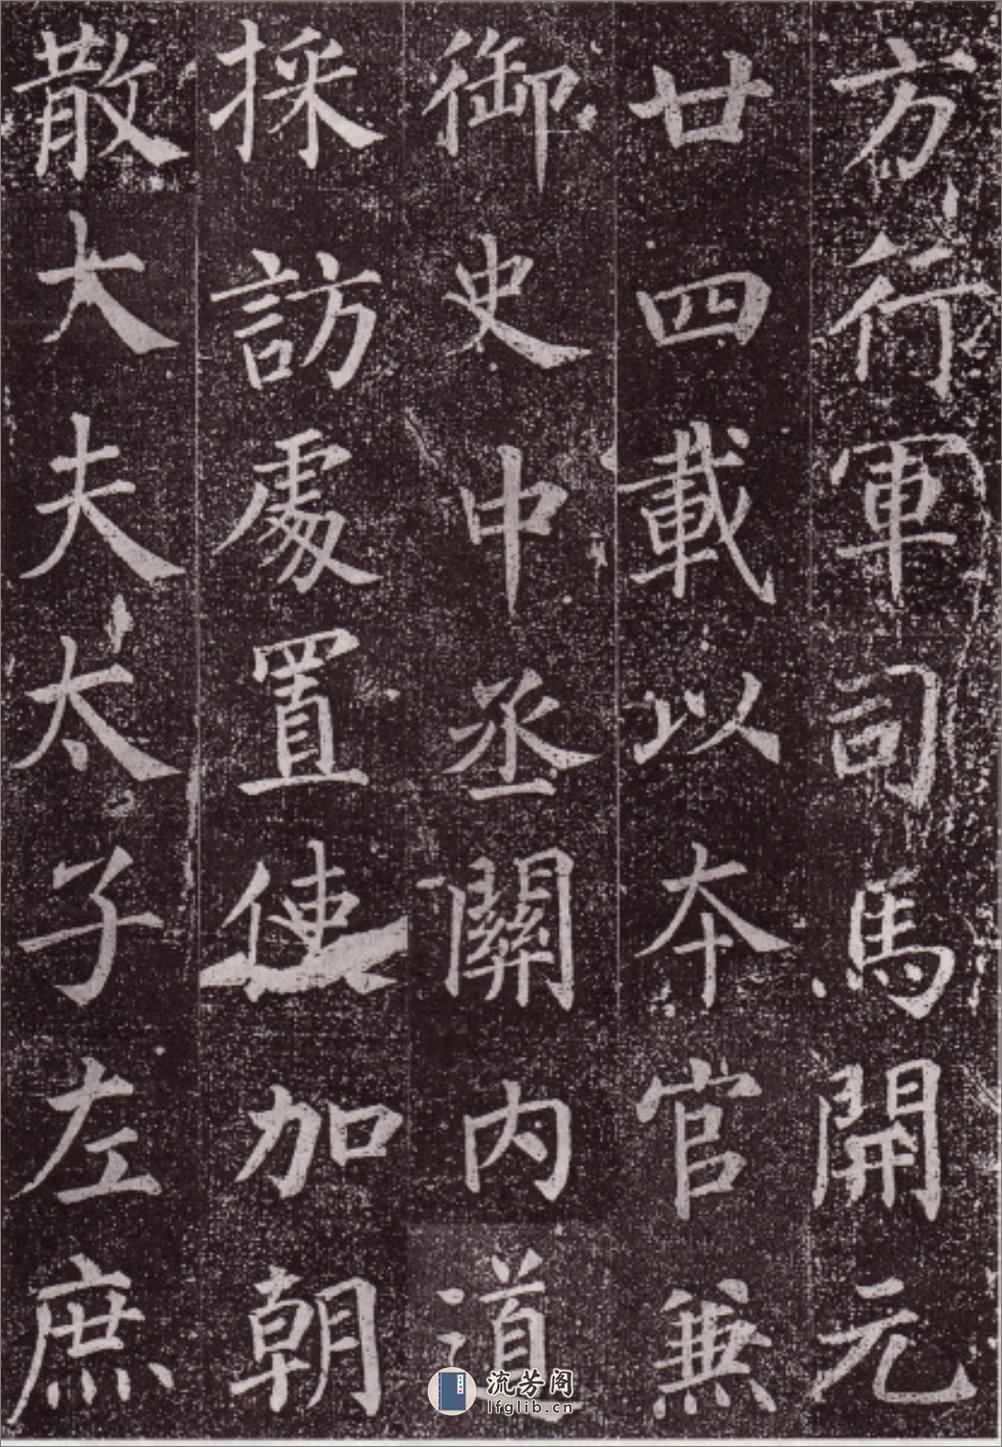 方行軍司馬開元
廿四載以本官兼
御史中丞關內道
採訪處置使加朝
散大夫太子左庶
流芳阁
lfglib.cn